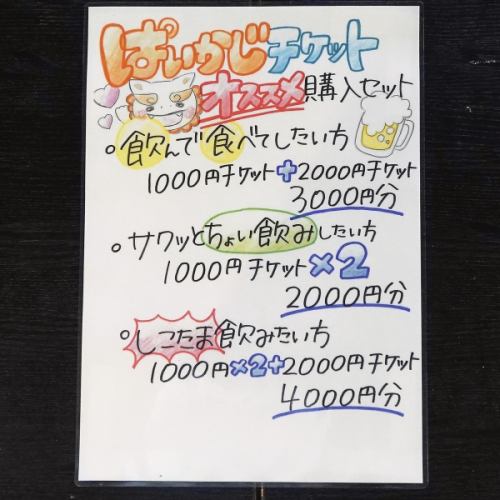 ぱいかじチケット
オススメ購入セット
。飲んで食べてしたい方
1000円チケット+2000円チケット
3000円分
。サクッとちょい飲みしたい方
1000円チケット×2
2000円分
。しこたま飲みたい方
1000円×2+2000円チケット
4000円分